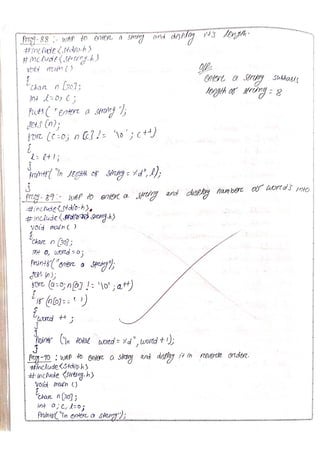 Prog-88:- WAP to enter a string and display its length.
#include<stdio.h>
#include<string.h>
void main()
{
char n[30];
int l=0,c;
puts("enter a string");
gets(n);
for(c=0; n[c]!='\0'; c++)
{
l=l+1;
}
printf("\n length of string=%d",l);
}
O/P:-
enter a string
length of string = 8
Prog-89:- WAP to enter a string and display numbers of words into
#include<stdio.h>
#include<string.h>
void main()
{
char n[30];
int a, word=0;
printf("enter a string");
gets(n);
for(a=0; n[a]!='\0'; a++)
{
if(n[a]==' ')
{
word++;
}
}
printf("\n total word=%d", word+1);
}
Prog-90: WAP to enter a string and display it in reverse order.
#include<stdio.h>
#include<string.h>
void main()
{
char n[30];
int a,c,l=0;
printf("\n enter a string");